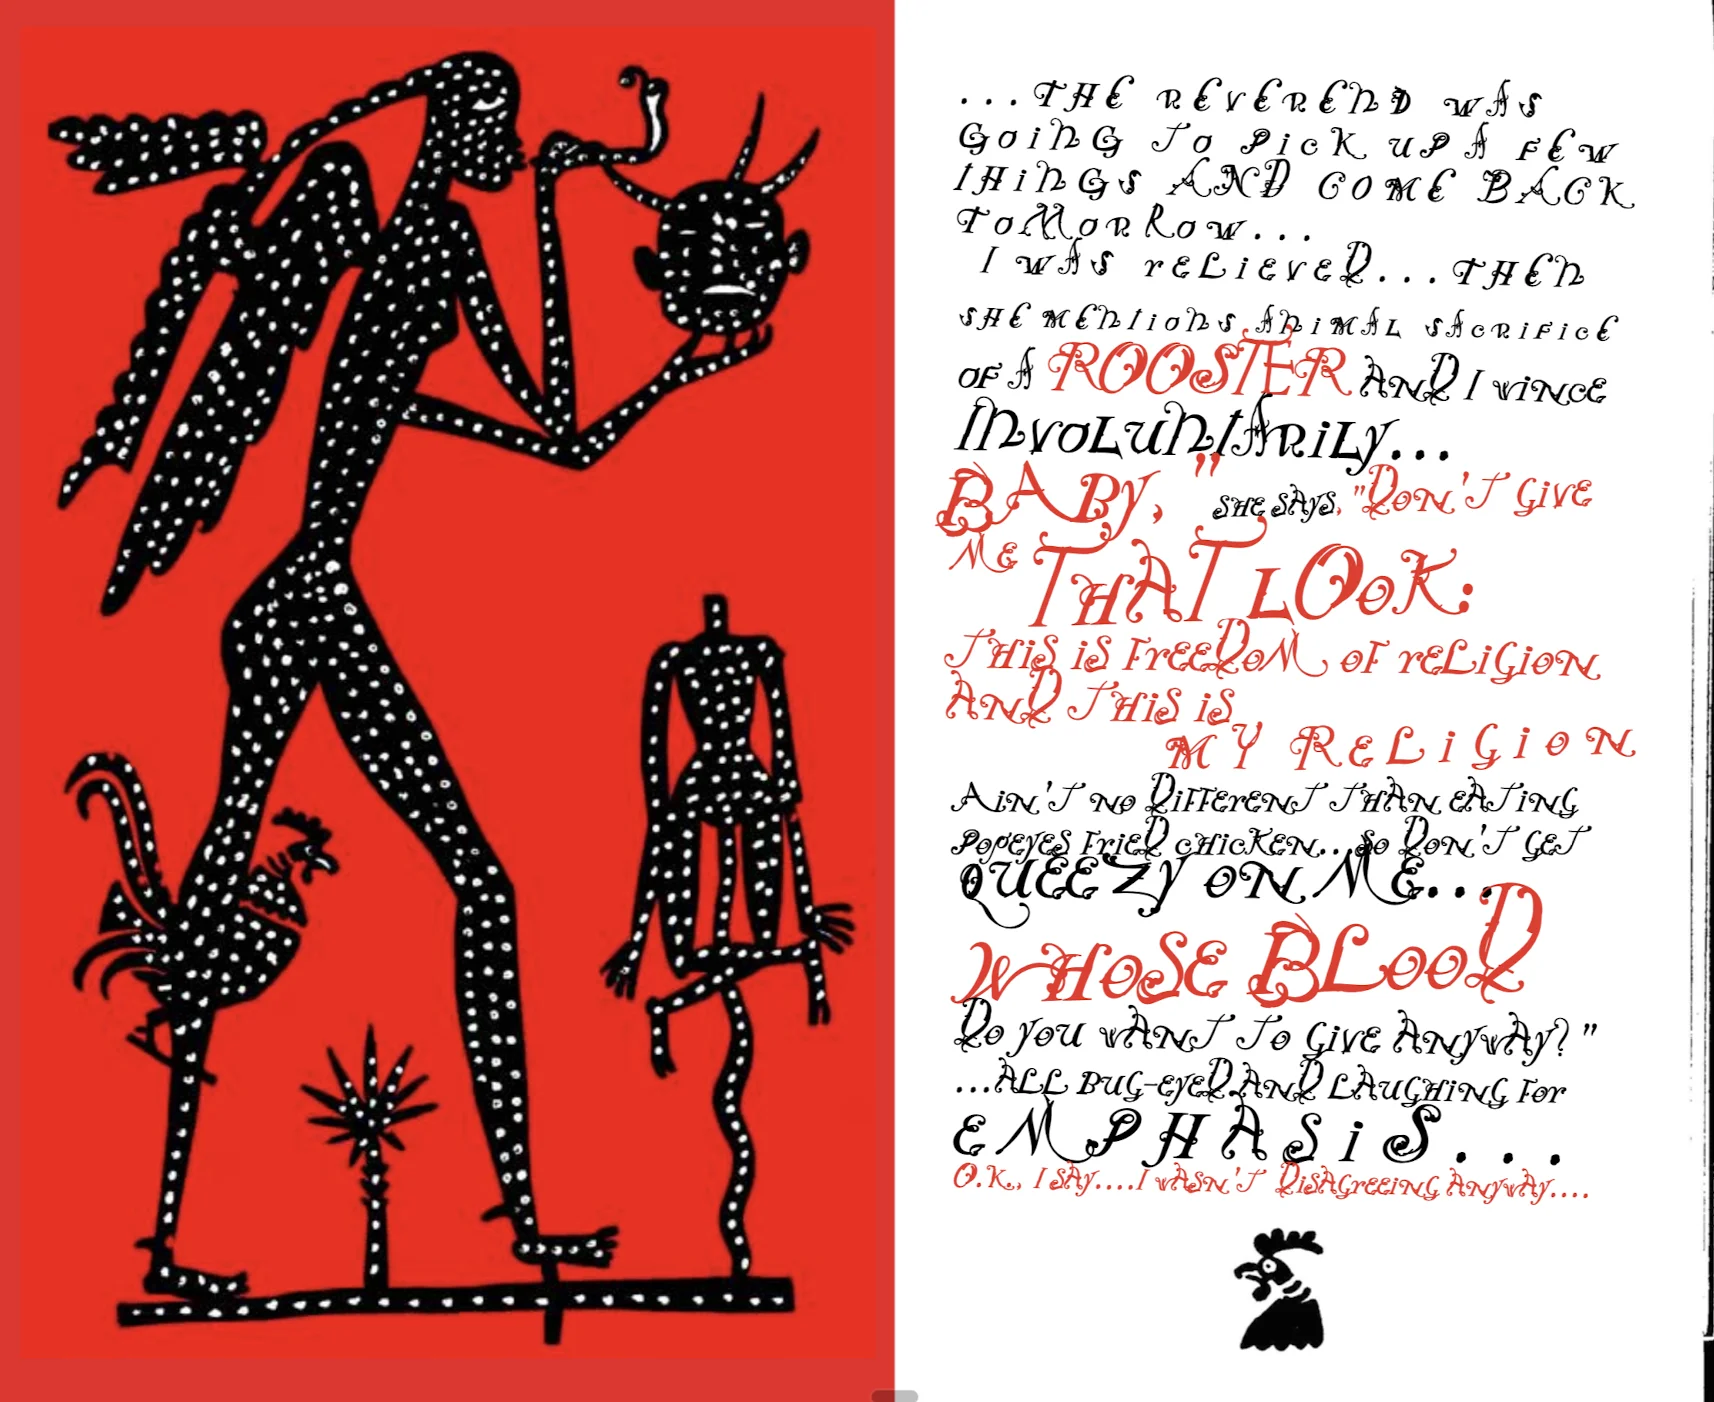 ...THE REVEREND WAS
GOING TO PICK UP A FEW
THINGS AND COME BACK
TOMORROW...
I WAS RELIEVED...THEN
SHE MENTIONS ANIMAL SACRIFICE
OF A ROOSTER AND I WINCE
INVOLUNTARILY...
BABY," SHE SAYS, "DON'T GIVE
ME THAT LOOK:
THIS IS FREEDOM OF RELIGION
AND THIS IS
MY RELIGION
AIN'T NO DIFFERENT THAN EATING
POPEYES FRIED CHICKEN...SO DON'T GET
QUEEZY ON ME...
WHOSE BLOOD
DO YOU WANT TO GIVE ANYWAY?"
...ALL BUG-EYED AND LAUGHING FOR
EMPHASIS...
O.K., I SAY....I WASN'T DISAGREEING ANYWAY....